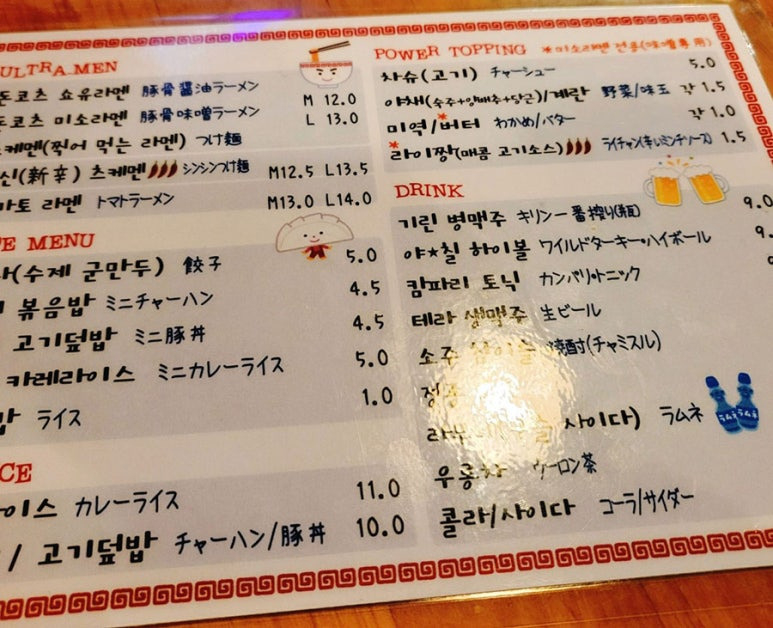 ULTRA.MEN
돈코츠 쇼유라멘 豚骨醤油ラーメン M 12.0
돈코츠 미소라멘 豚骨味噌ラーメン L 13.0
츠케멘(찍어 먹는 라멘) つけ麺
신(新辛) 츠케멘 シンシンつけ麺 M12.5 L13.5
라멘 トマトラーメン M13.0 L14.0
MENU
(수제 군만두) 餃子 5.0
볶음밥 ミニチャーハン 4.5
고기덮밥 ミニ豚丼 4.5
카레라이스 ミニカレーライス 5.0
ライス 1.0
カレーライス 11.0
/ 고기덮밥 チャーハン/豚丼 10.0
POWER TOPPING *미소라멘 전용(味噌専用)
차슈(고기) チャーシュー 5.0
야채(숙주+양배추+당근)/계란 野菜/味玉 각 1.5
미역/*버터 わかめ/バター 각 1.0
*라이짱(매콤 고기소스) ライチャン(辛いミンチソース) 1.5
DRINK
기린 병맥주 キリン一番搾り(瓶) 9.0
야★칠 하이볼 ワイルドターキー・ハイボール 9.
캄파리 토닉 カンパリ・トニック
테라 생맥주 生ビール
소주 焼酎(チャミスル)
사이다) ラムネ
ラムネ ラムネ
우롱차 ウーロン茶
콜라/사이다 コーラ/サイダー